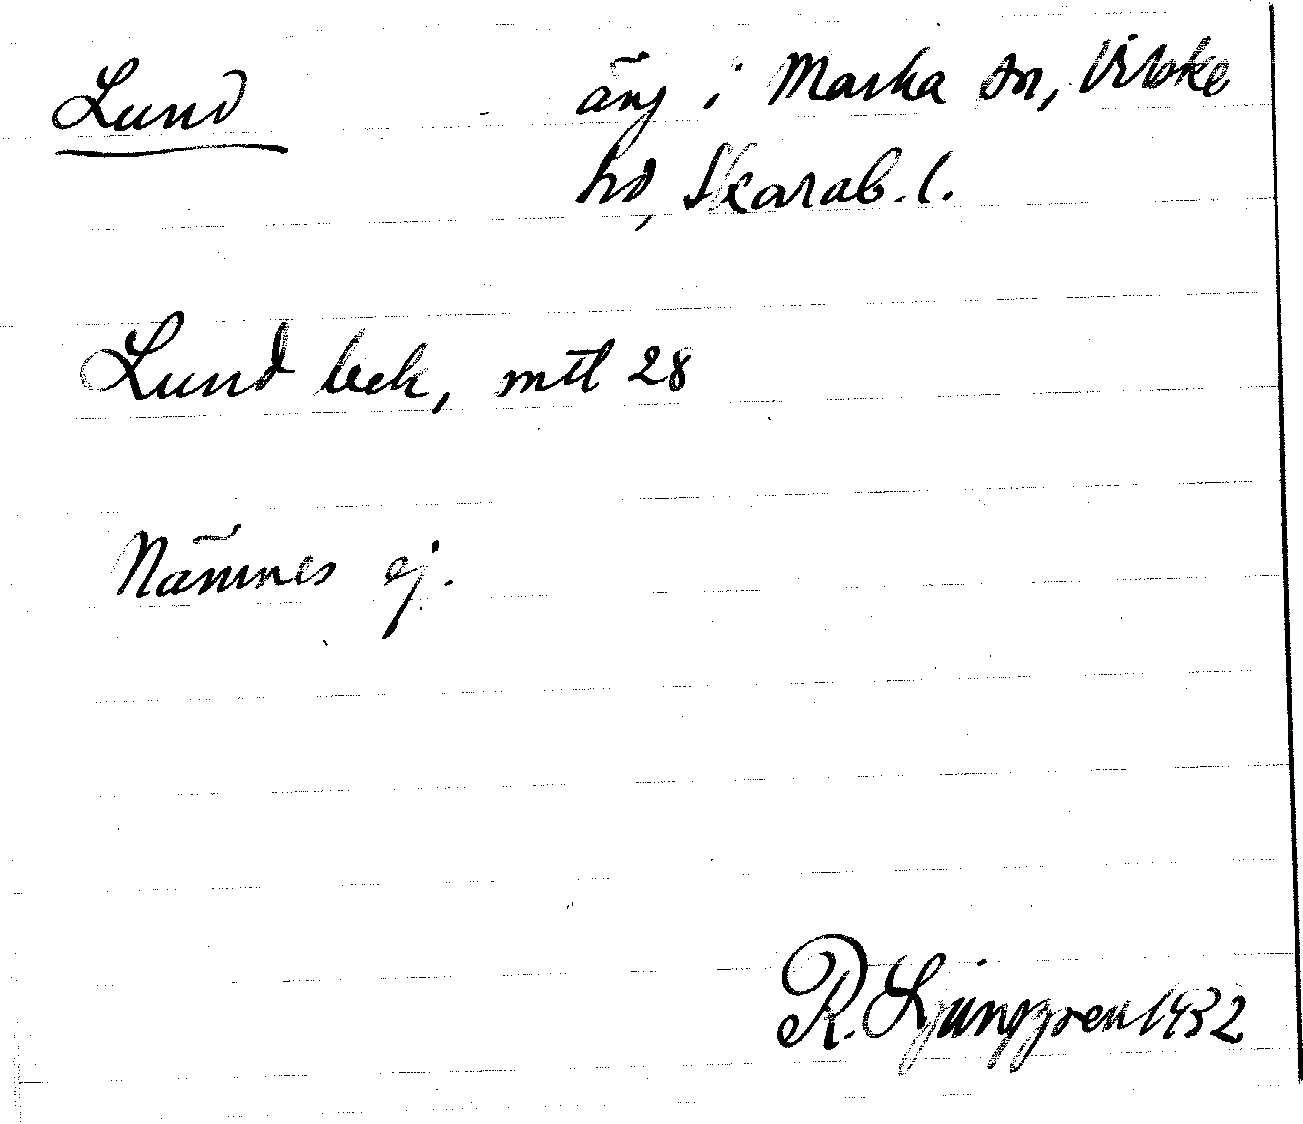 Lund äng i Marka sn, Vilske
hd, Skarab. l.
Lund bek, mtl 28
Nämnes ej.
R. Ljunggren 1932